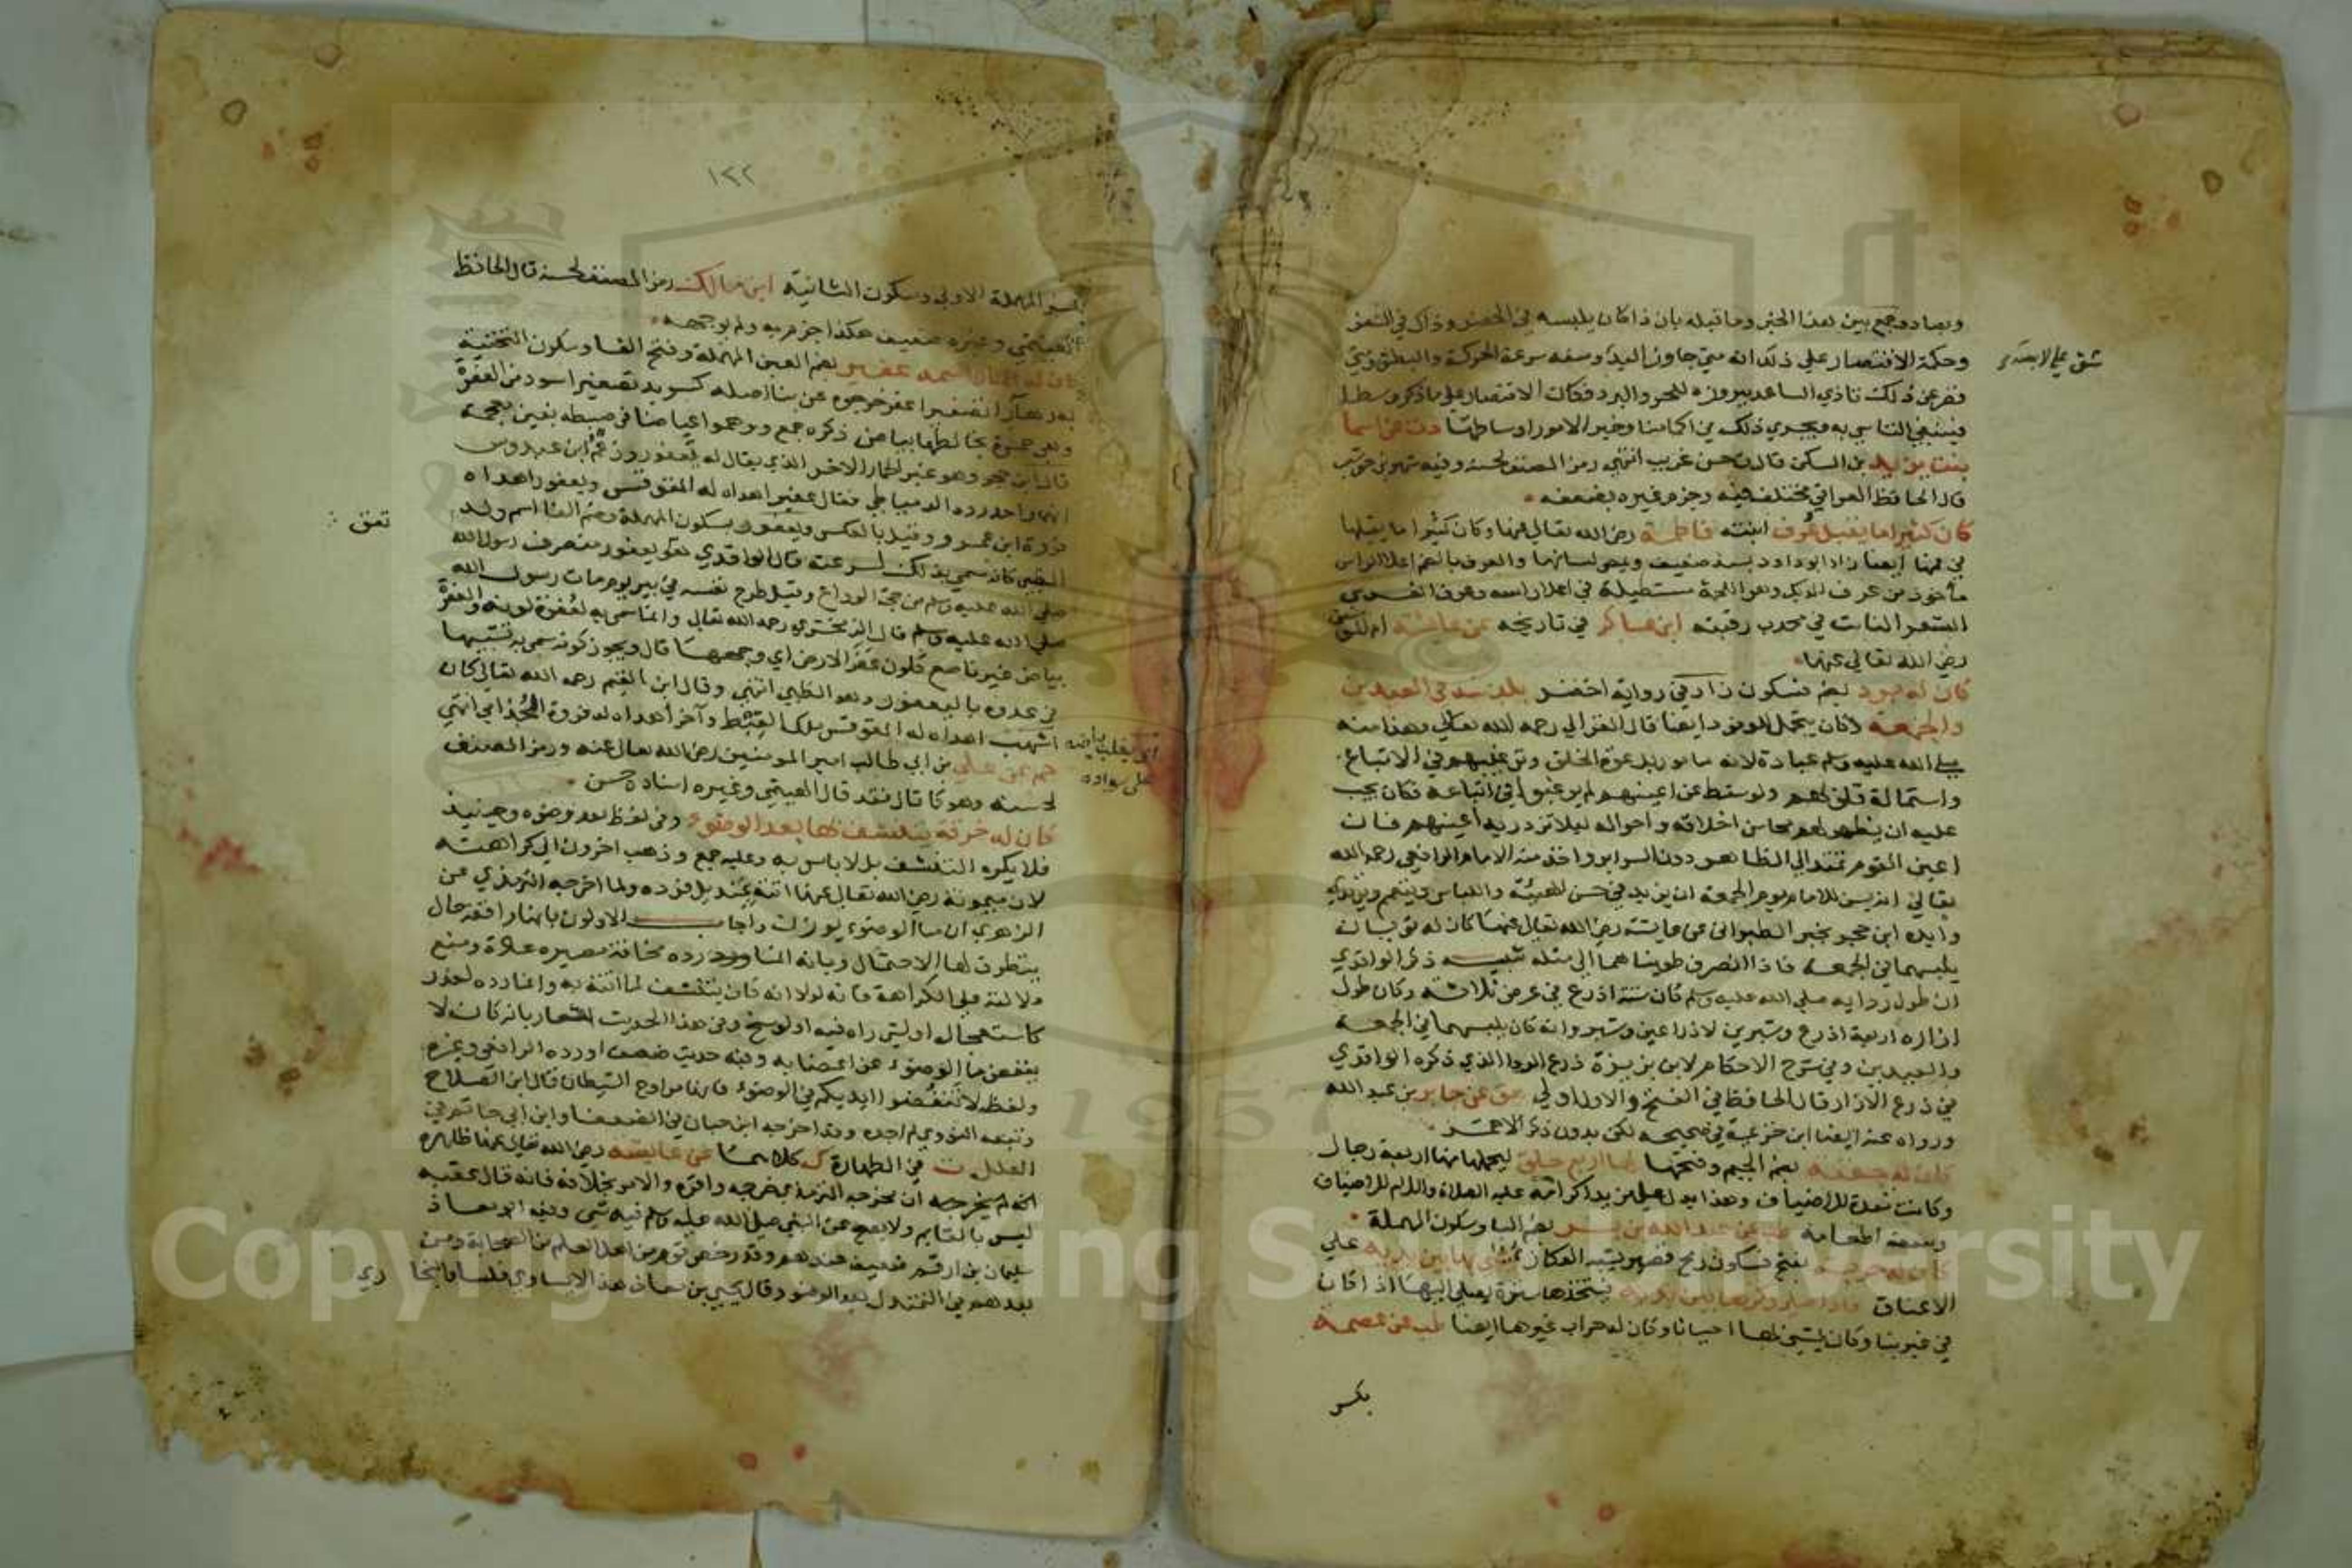 وبصاد وجمع بين هذا الخبر وما قبله بان ذا كان يلبسه في الحضر وذاك في السفر
وحكمة الاقتصار علي ذلك انه متي جاوز اليد وسفه سرعة الحركة والبطش ومتي
شق علي لابسه
قصر عن ذلك تاذي الساعد ببروزه للحر والبرد فكان الاقتصار علي ما ذكر وسطا
فينبغي التاسي به ويجري ذلك في اكمامنا وخير الامور اوساطها دت عن اسما
بنت يزيد بن السكن قال ت حسن غريب انتهي رمز المصنف لحسنه وفيه شهر بن حوشب
قال الحافظ العراقي مختلف فيه وجزم غيره بضعفه
كان كثيرا ما يقبل عرف ابنته فاطمة رضي الله تعالي عنها وكان كثيرا ما يقبلها
في فمها ايضا زاد ابو داود بسند ضعيف ويمص لسانها والعرف بالضم اعلا الراس
مأخوذ من عرف الديك وهو اللحمة مستطيلة في اعلا راسه وعرف الفرس
الشعر النابت في محدب رقبته ابن عساكر في تاريخه عن عائشة ام المؤمنين
رضي الله تعالي عنها
كان له برد بضم فسكون زاد في رواية اخضر يلبسه في العيدين
والجمعة وكان يتجمل للوفود ايضا قال الغزالي رحمه الله تعالي وهذا منه
صلي الله عليه وسلم عبادة لانه مامور بدعوة الخلق وترغيبهم في الاتباع
واستمالة قلوبهم ولو سقط عن اعينهم لم يرغبوا في اتباعه فكان يجب
عليه ان يظهر لهم محاسن اخلاقه واحواله ليلا تزدريه أعينهم فان
اعين القوم تمتد الي الظاهر دون السراير واخذ منه الامام الرافعي رحمه الله
تعالي انه يسن للامام يوم الجمعة ان يزيد في حسن الهيئة واللباس ويتعمم ويرتدي
وأيده ابن حجر بخبر الطبراني عن عايشة رضي الله تعالي عنها كان له ثوبان
يلبسهما في الجمعة فاذا انصرف طويناهما الي مثله تنبيه ذكر الواقدي
ان طول ردايه صلي الله عليه وسلم كان ستة اذرع في عرض ثلاثة وكان طول
ازاره اربعة اذرع وشبرين لا ذراعين وشبر وانه كان يلبسهما في الجمعة
والعيدين وفي شرح الاحكام لابن بزيزة ذرع الردا الذي ذكره الواقدي
في ذرع الازار قال الحافظ في الفتح والاول اولي هق عن جابر بن عبد الله
ورواه عنه ايضا ابن خزيمة في صحيحه لكن بدون ذكر الاحمر
كان له جفنة بضم الجيم وفتحها لها اربع حلق ليحملها منها اربعة رجال
وكانت معدة للاضياف وهذا يدل علي مزيد اكرامه عليه الصلاة والسلام للاضياف
وسعة اطعامه طب عن عبد الله بن بسر بضم البا وسكون المهملة
كان له حربة بفتح فسكون رمح قصير يشبه العكاز يمشي بها بين يديه علي
الاعناق فاذا صلي ركزها بين يديه فيتخذها سترة يصلي اليها اذا كان
في غير بنا وكان يمشي بها احيانا وكان له حراب غيرها ايضا طب عن عصمة
بكسر
١٢٢
بكسر المهملة الاولي وسكون الثانية ابن مالك رمز المصنف لحسنه قال الحافظ
الهيثمي وغيره ضعيف هكذا جزم به ولم يوجهه
كان له حمار اسمه عفير بضم العين المهملة وفتح الفا وسكون التحتية
بعدها را تصغير اعفر خرجوه عن بنا اصله كسويد تصغير اسود من العفرة
وهي حمرة يخالطها بياض ذكره جمع ووهموا عياضا في ضبطه بغين معجمة
قال ابن حجر وهو غير الحمار الاخر الذي يقال له يعفور وزعم ابن عبدوس
انهما واحد رده الدمياطي فقال عفير اهداه له المقوقس ويعفور اهداه
فروة ابن عمرو وقيل بالعكس ويعفور بسكون المهملة وضم الفا اسم ولد
الظبي كانه سمي بذلك لسرعته قال الواقدي نفق يعفور منصرف رسول الله
نفق
صلي الله عليه وسلم من حجة الوداع وقيل طرح نفسه في بير يوم مات رسول الله
صلي الله عليه وسلم قال الزمخشري رحمه الله تعالي وانما سمي به لعفرة لونه والعفرة
بياض غير ناصع كلون عفر الارض اي وجهها قال ويجوز كونه سمي به تشبيها
في عدوه باليعفور وهو الظبي انتهي وقال ابن القيم رحمه الله تعالي كان
اشهب اهداه له المقوقس ملك القبط وآخر أهداه له فروة الجذامي انتهي
اي يغلب بياضه
علي سواده
حم عن علي بن ابي طالب امير المومنين رضي الله تعالي عنه ورمز المصنف
لحسنه وهو كما قال فقد قال الهيثمي وغيره اسناده حسن
كان له خرقة يتنشف بها بعد الوضوء وفي لفظ بعد وضوه وحينيذ
فلا يكره التنشف بل لا باس به وعليه جمع وذهب اخرون الي كراهته
لان ميمونة رضي الله تعالي عنها اتته بمنديل فرده ولما اخرجه الترمذي عن
الزهري ان ما الوضوء يوزن واجاب الاولون بانها واقعة حال
يتطرق لها الاحتمال وبانه انما رده مخافة مصيره عادة ومنع
دلالته علي الكراهة فانه لولا انه كان يتنشف لما اتته به وانما رده لعذر
كاستعجال او لشي راه فيه او لوسخ وفي هذا الحديث اشعار بانه كان لا
ينفض ما الوضوء عن اعضايه وفيه حديث ضعيف اورده الرافعي وغيره
ولفظه لا تنفضوا ايديكم في الوضوء فانها مراوح الشيطان قال ابن الصلاح
وتبعه النووي لم اجده وقد اخرجه ابن حبان في الضعفا وابن ابي حاتم في
العلل ت في الطهارة ك كلاهما عن عايشة رضي الله تعالي عنها ظاهره
انه لم يخرجه ان مخرجه الترمذي خرجه واقره والامر بخلافه فانه قال عقبه
ليس بالقايم ولا يصح عن النبي صلي الله عليه وسلم فيه شي وفيه ابو معاذ
سليمان بن ارقم ضعيف عندهم وقد رخص قوم من اهل العلم من الصحابة ومن
بعدهم في التمندل بعد الوضوء وقال يحيي بن معاذ هذا لا يساوي فلسا وقال البخا
ري
Copyright © King Saud University
1957